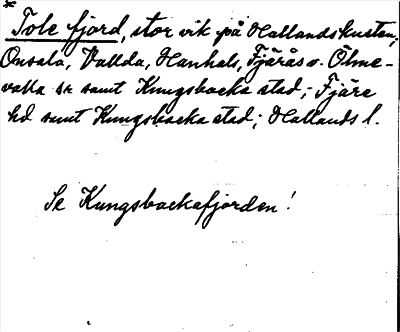 *
Tole fjord, stor vik på Hallandskusten;
Onsala, Vallda, Hanhals, Fjärås o. Ölme-
valla sn samt Kungsbacka stad; Fjäre
hd samt Kungsbacka stad; Hallands l.
Se Kungsbackafjorden!